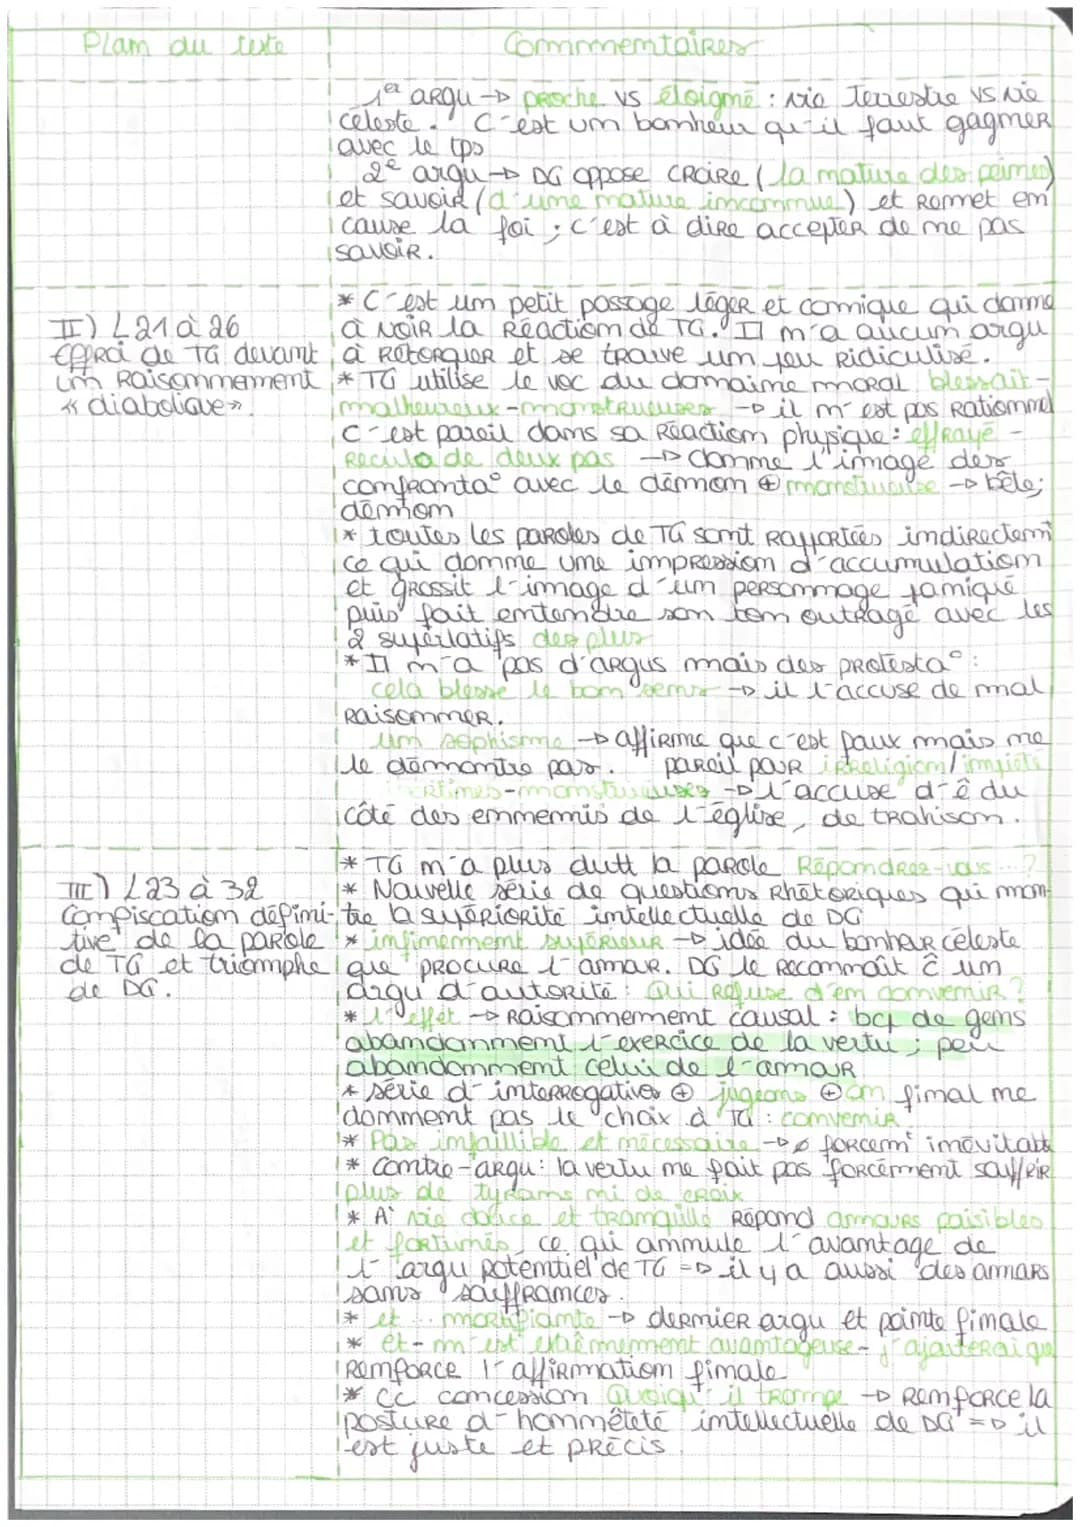 Plan du texte
Commentaires
1er argu → proche vs éloigné : vie terrestre vs vie
céleste. C'est un bonheur qu'il faut gagner
avec le tps
2e argu → DG oppose croire (la nature des peines)
et savoir (d'une nature inconnue) et Remet en
cause la foi ; c'est à dire accepter de ne pas
savoir.
II) L21 à 26
Effroi de TG devant
un Raisonnement
« diabolique ».
* C'est un petit passage léger et comique qui donne
à voir la Réaction de TG. Il n'a aucun argu
à Rétorquer et se trouve un peu Ridiculisé.
* TG utilise le voc du domaine moral blessait -
malheureux - monstrueuses → il n'est pas Rationnel
C'est pareil dans sa Réaction physique : effrayé -
Recula de deux pas → donne l'image des
confronta° avec le démon ⊕ monstrueuse → bête ;
démon
* toutes les paroles de TG sont Rapportées indirectemt
ce qui donne une impression d'accumulation
et grossit l'image d'un personnage paniqué
puis fait entendre son ton outragé avec les
2 superlatifs des plus
* Il n'a pas d'argus mais des protesta° :
cela blesse le bon sens → il l'accuse de mal
Raisonner.
un sophisme → affirme que c'est faux mais ne
le démontre pas. pareil pour irreligion / impiété
crimes - monstrueuses → l'accuse d'ê du
côté des ennemis de l'église, de trahison.
III) L23 à 32
Confiscation défini-
tive de la parole
de TG et triomphe
de DG.
* TG n'a plus dutt la parole Répondrez-vous...?
* Nouvelle série de questions Rhétoriques qui mon-
tre la supériorité intellectuelle de DG
* infiniment supérieur → idée du bonheur céleste
que procure l'amour. DG le Reconnaît c̄ un
argu d'autorité : Qui Refuse d'en convenir ?
* l'effet → Raisonnement causal : bcp de gens
abandonnent l'exercice de la vertu ; peu
abandonnent celui de l'amour
* série d'interrogatives ⊕ jugeons ⊕ on final ne
donnent pas le choix à TG : convenir
* Pas infaillible et nécessaire → ø forcemt inévitable
* contre-argu : la vertu ne fait pas forcément souffrir
plus de tyrans ni de croix
* A' vie douce et tranquille Répond amours paisibles
et fortunés, ce qui annule l'avantage de
l'argu potentiel de TG => il y a aussi des amours
sans souffrances.
* et ... mortifiante → dernier argu et pointe finale
* et - n'est extrêmement avantageuse - j'ajouterai que
Remforce l'affirmation finale
* CC concession Quoiqu'il trompe → Remforce la
posture d'honnêteté intellectuelle de DG => il
est juste et précis.